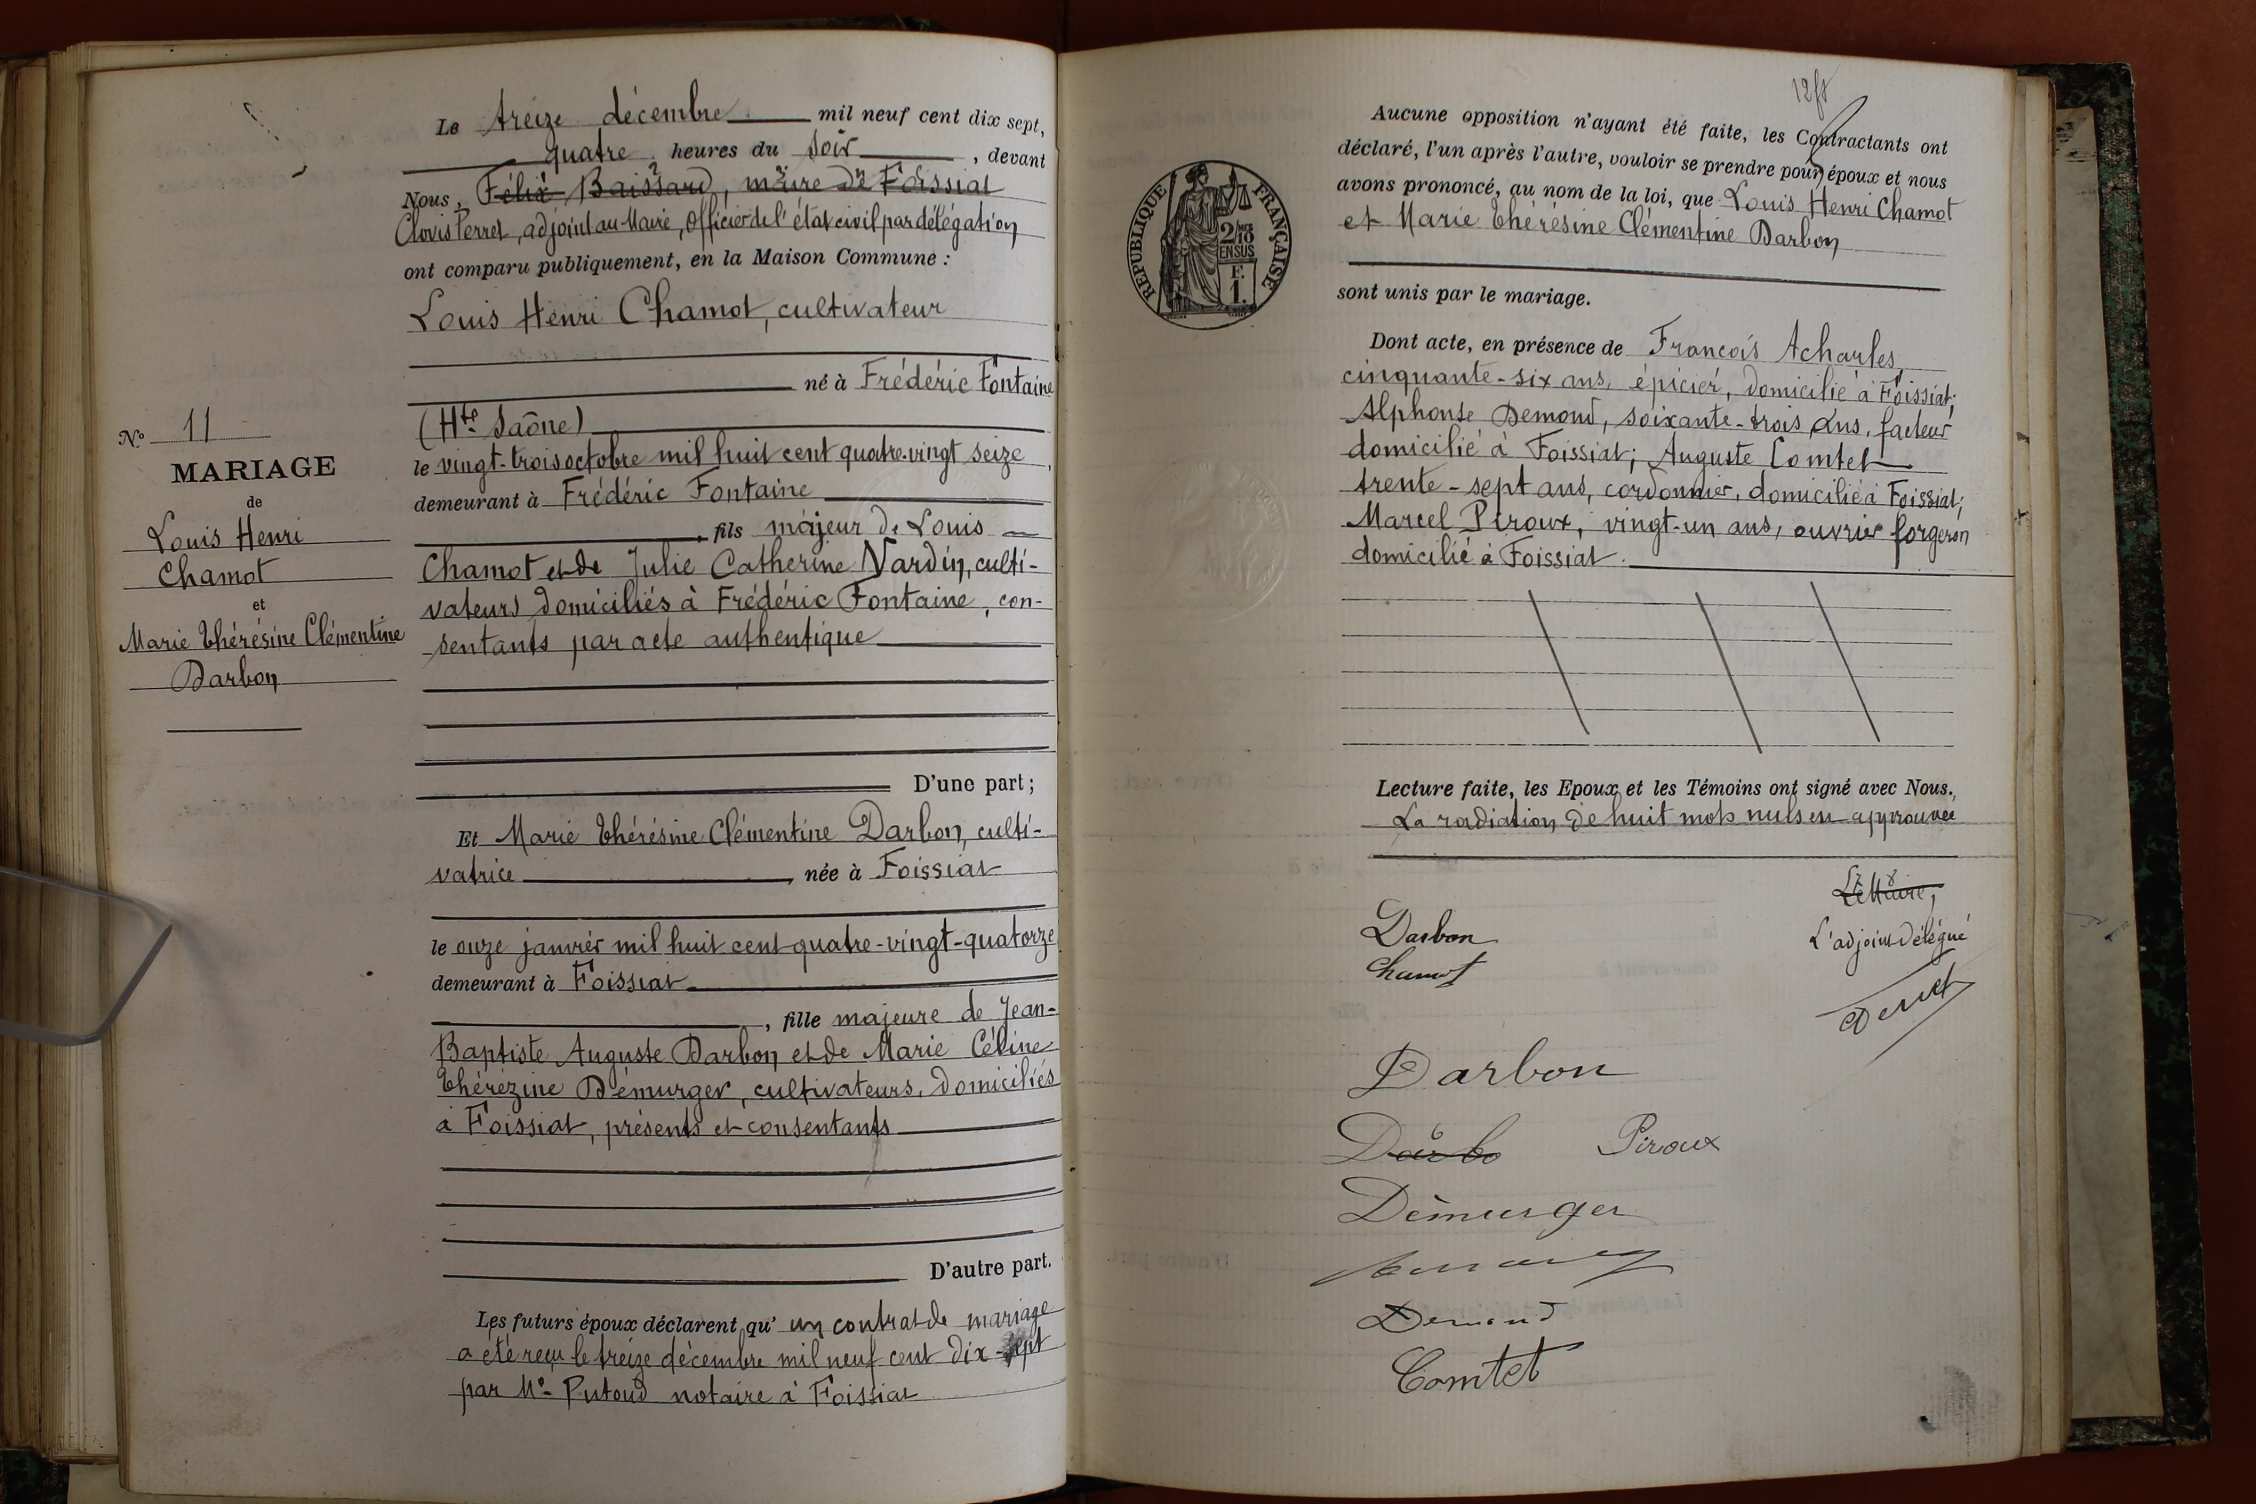 Le treize décembre mil neuf cent dix sept,
quatre heures du soir, devant
Nous, Félix Baissard, maire de Foissiat
Clovis Perret, adjoint au Maire, officier de l'état civil par délégation
ont comparu publiquement, en la Maison Commune :
Louis Henri Chamot, cultivateur
né à Frédéric Fontaine
(Hte Saône)
le vingt-trois octobre mil huit cent quatre-vingt seize,
demeurant à Frédéric Fontaine
, fils majeur de Louis
Chamot et de Julie Catherine Nardin, culti-
vateurs domiciliés à Frédéric Fontaine, con-
sentants par acte authentique
D'une part;
Et Marie Thérésine Clémentine Darbon, culti-
vatrice, née à Foissiat
le onze janvier mil huit cent quatre-vingt-quatorze
demeurant à Foissiat
, fille majeure de Jean-
Baptiste Auguste Darbon et de Marie Céline
Thérézine Démurger, cultivateurs, domiciliés
à Foissiat, présents et consentants
D'autre part.
Les futurs époux déclarent qu'un contrat de mariage
a été reçu le treize décembre mil neuf cent dix-sept
par Me Putoud notaire à Foissiat
No 11
MARIAGE
de
Louis Henri
Chamot
et
Marie Thérésine Clémentine
Darbon
Aucune opposition n'ayant été faite, les Contractants ont
déclaré, l'un après l'autre, vouloir se prendre pour époux et nous
avons prononcé, au nom de la loi, que Louis Henri Chamot
et Marie Thérésine Clémentine Darbon
sont unis par le mariage.
Dont acte, en présence de François Acharles,
cinquante-six ans, épicier, domicilié à Foissiat;
Alphonse Demond, soixante-trois ans, facteur
domicilié à Foissiat; Auguste Comtet
trente-sept ans, cordonnier, domicilié à Foissiat;
Marcel Piroux, vingt-un ans, ouvrier forgeron
domicilié à Foissiat.
Lecture faite, les Epoux et les Témoins ont signé avec Nous.
La radiation de huit mots nuls en approuvée
Le Maire,
L'adjoint délégué
Perret
Darbon
Chamot
Darbon
Darbo
Piroux
Démurger
Demond
Comtet
RÉPUBLIQUE FRANÇAISE
2/10
EN SUS
F.
1.